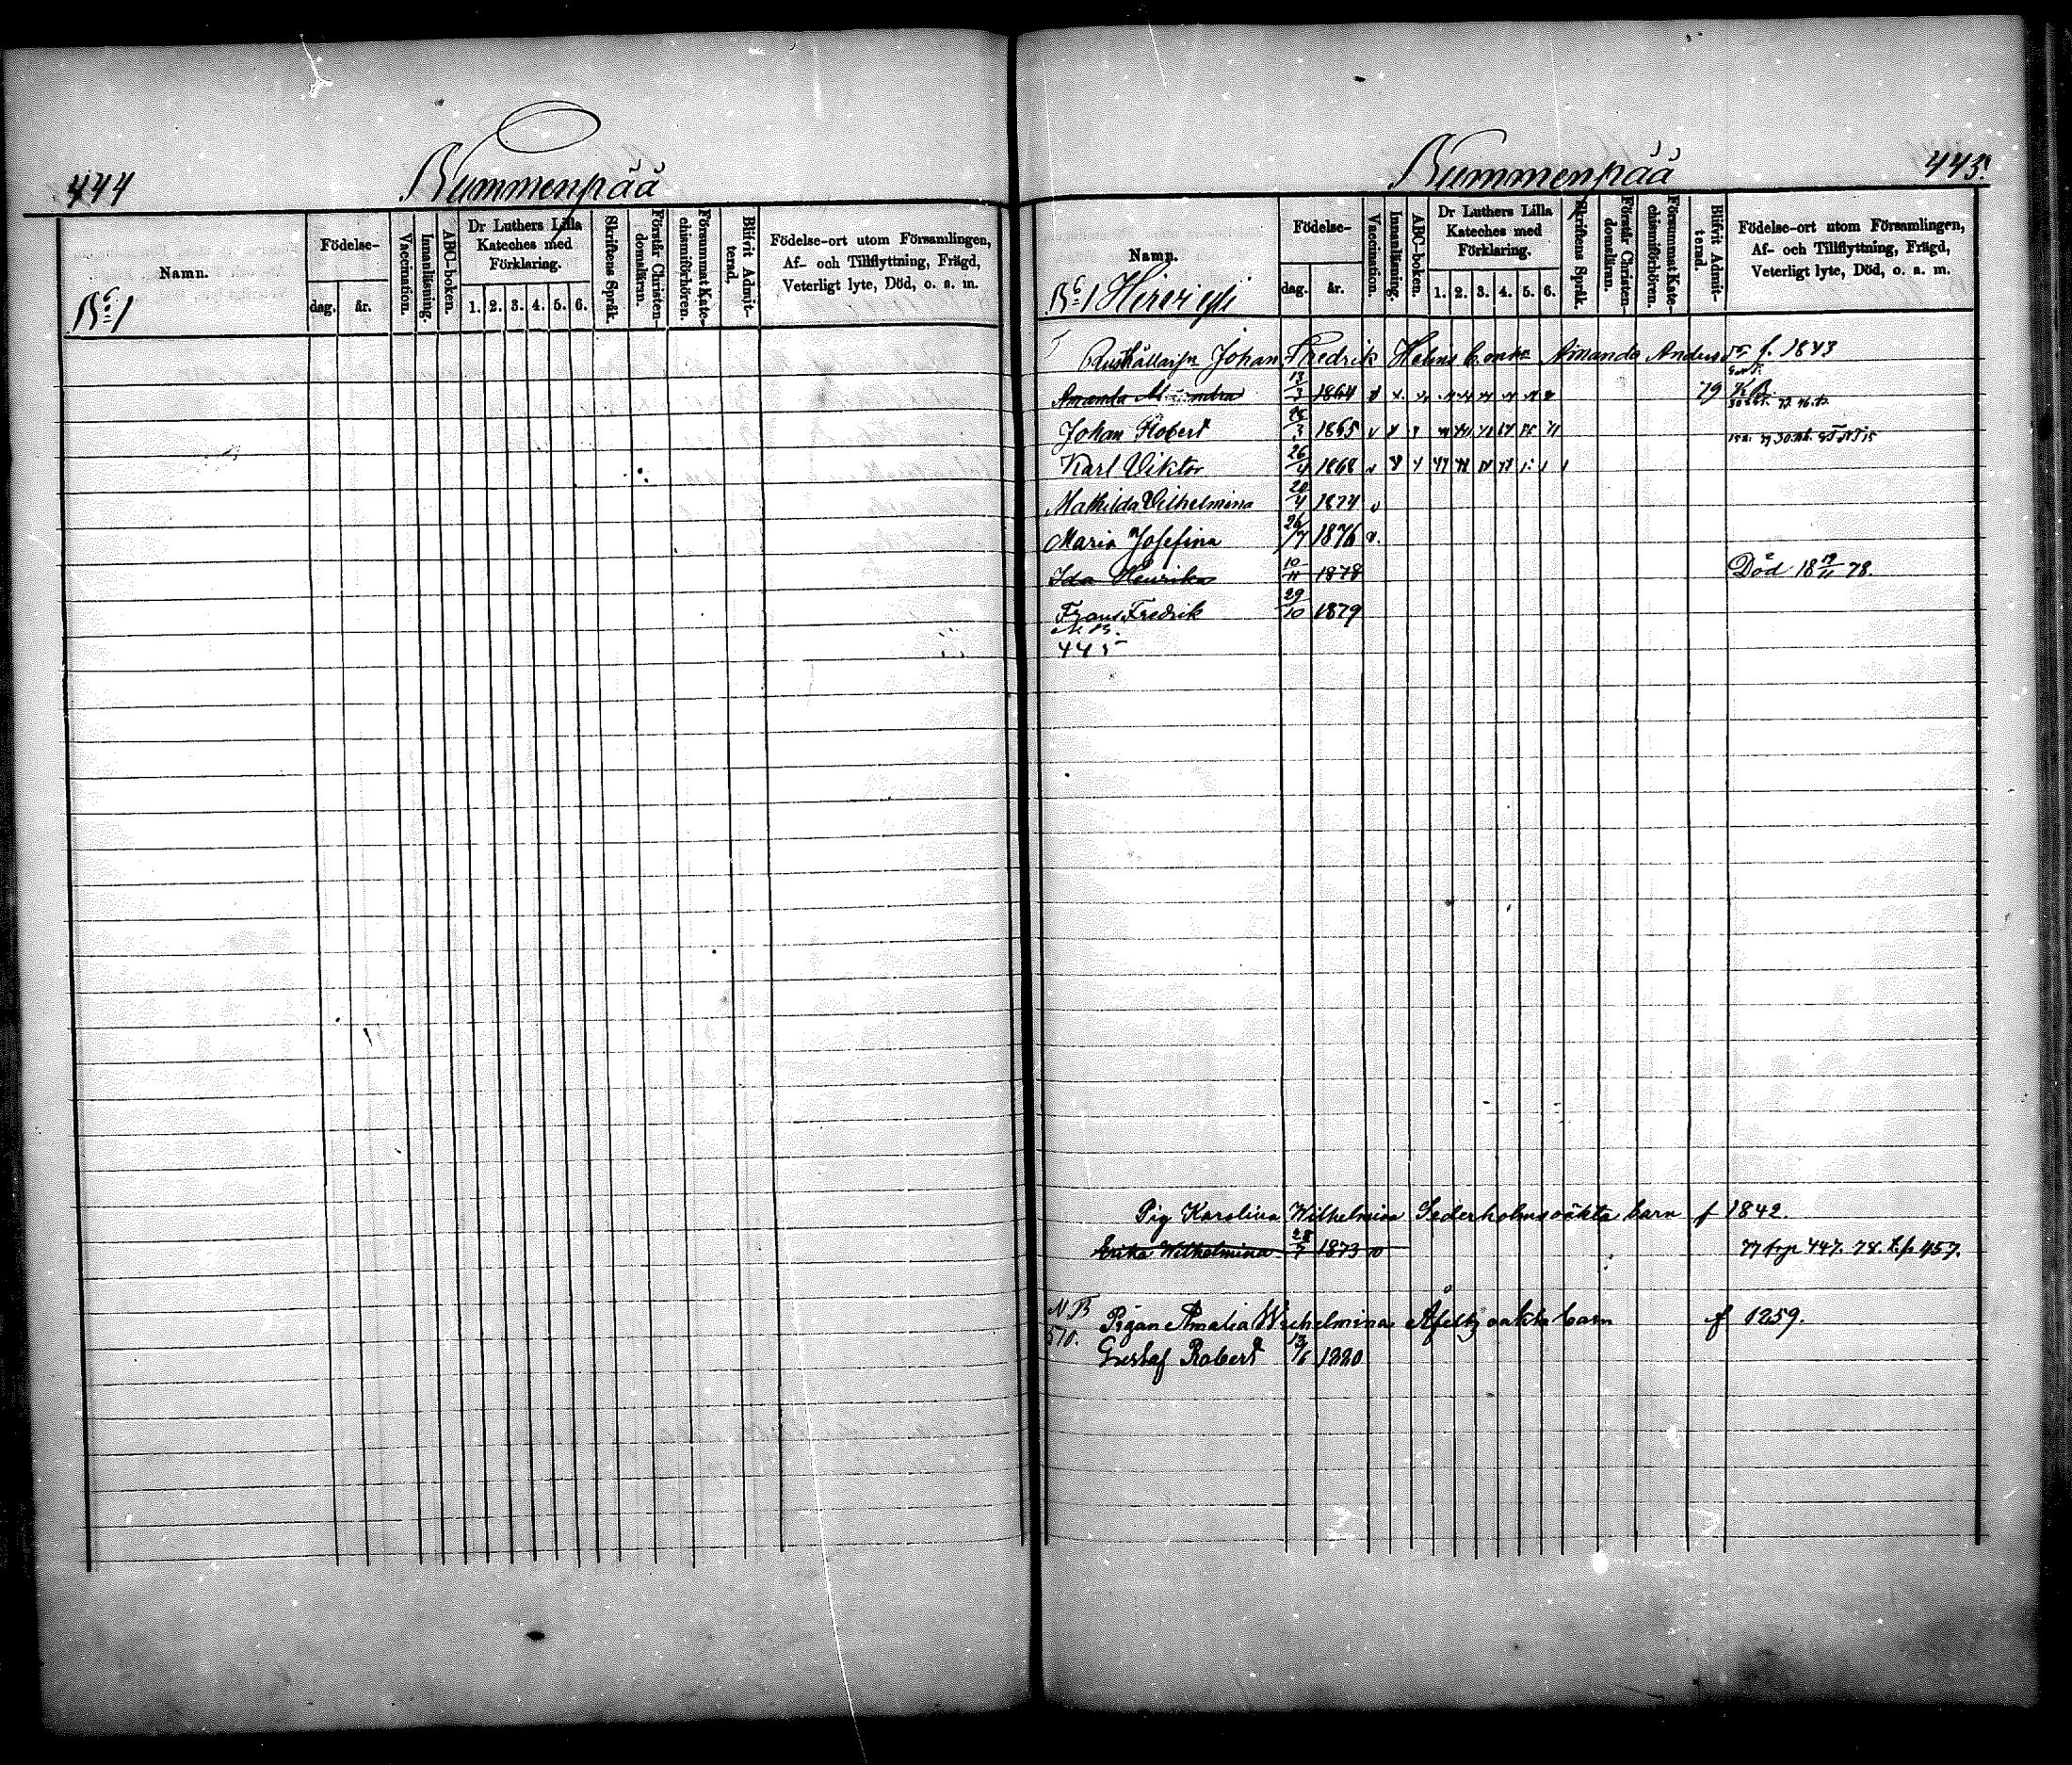 444
Nummenpää
Namn.
Födelse-
dag.
år.
Vaccination.
Innanläsning.
ABC-boken.
Dr Luthers Lilla Kateches med Förklaring.
1. 2. 3. 4. 5. 6.
Skriftens Språk.
Förstår Christendomläran.
Försummat Katechismiförhören.
Blifvit Admitterad,
Födelse-ort utom Församlingen,
Af- och Tillflyttning, Frägd,
Veterligt lyte, Död, o. a. m.
No 1
Nummenpää
445.
Namn.
Födelse-
dag.
år.
Vaccination.
Innanläsning.
ABC-boken.
Dr Luthers Lilla Kateches med Förklaring.
1. 2. 3. 4. 5. 6.
Skriftens Språk.
Förstår Christendomläran.
Försummat Katechismiförhören.
Blifvit Admitterad.
Födelse-ort utom Församlingen,
Af- och Tillflyttning, Frägd,
Veterligt lyte, Död, o. a. m.
No 1
Johan Fredrik Amanda f. 1843
Amanda 13/3 1864 79
Johan Robert 28/3 1865
Karl Viktor 26/4 1868
Mathilda Vilhelmina 20/4 1874
Maria Josefina 26/7 1876
Ida Henrika 10/11 1878 Död 18 19/11 78.
Frans Fredrik 29/10 1879
N.B.
445
Pig Karolina Wilhelmina Sederholms oäkta barn f 1842.
Erika Wilhelmina 28/7 1873 447. 78. 457.
N B Pigan Amalia Wilhelmina oäkta barn f 1859.
510. Gustaf Robert 13/6 1880